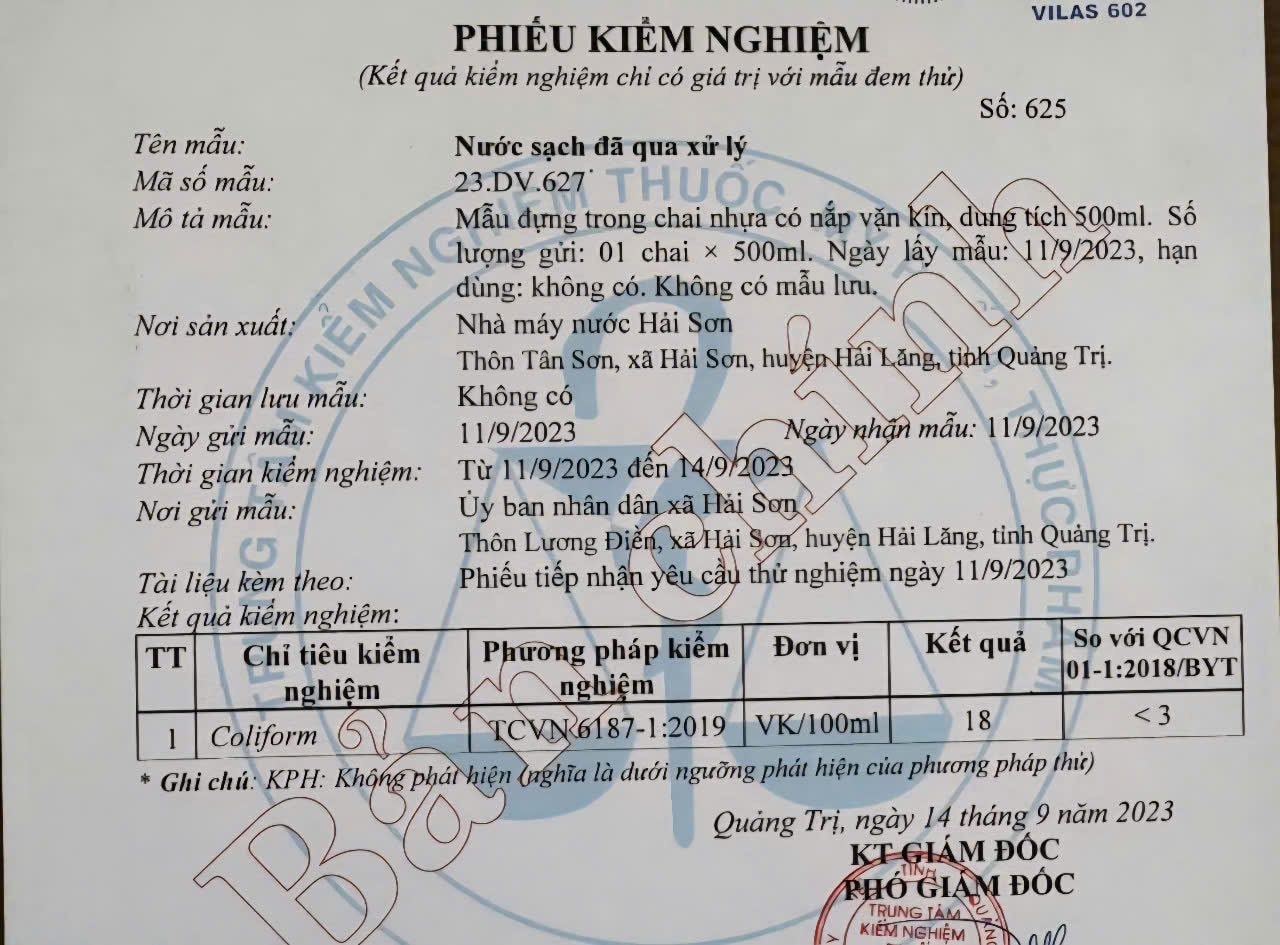 VILAS 602
PHIẾU KIỂM NGHIỆM
(Kết quả kiểm nghiệm chỉ có giá trị với mẫu đem thử)
Số: 625
Tên mẫu: Nước sạch đã qua xử lý
Mã số mẫu: 23.DV.627
Mô tả mẫu: Mẫu đựng trong chai nhựa có nắp vặn kín, dung tích 500ml. Số
lượng gửi: 01 chai × 500ml. Ngày lấy mẫu: 11/9/2023, hạn
dùng: không có. Không có mẫu lưu.
Nơi sản xuất: Nhà máy nước Hải Sơn
Thôn Tân Sơn, xã Hải Sơn, huyện Hải Lăng, tỉnh Quảng Trị.
Thời gian lưu mẫu: Không có
Ngày gửi mẫu: 11/9/2023 Ngày nhận mẫu: 11/9/2023
Thời gian kiểm nghiệm: Từ 11/9/2023 đến 14/9/2023
Nơi gửi mẫu: Ủy ban nhân dân xã Hải Sơn
Thôn Lương Điền, xã Hải Sơn, huyện Hải Lăng, tỉnh Quảng Trị.
Tài liệu kèm theo: Phiếu tiếp nhận yêu cầu thử nghiệm ngày 11/9/2023
Kết quả kiểm nghiệm:
TT Chỉ tiêu kiểm nghiệm Phương pháp kiểm nghiệm Đơn vị Kết quả So với QCVN 01-1:2018/BYT
1 Coliform TCVN 6187-1:2019 VK/100ml 18 < 3
* Ghi chú: KPH: Không phát hiện (nghĩa là dưới ngưỡng phát hiện của phương pháp thử)
Quảng Trị, ngày 14 tháng 9 năm 2023
KT GIÁM ĐỐC
PHÓ GIÁM ĐỐC
TỈNH QUẢNG
TRUNG TÂM
KIỂM NGHIỆM
Bản chính
TRUNG TÂM KIỂM NGHIỆM THUỐC, MỸ PHẨM, THỰC PHẨM